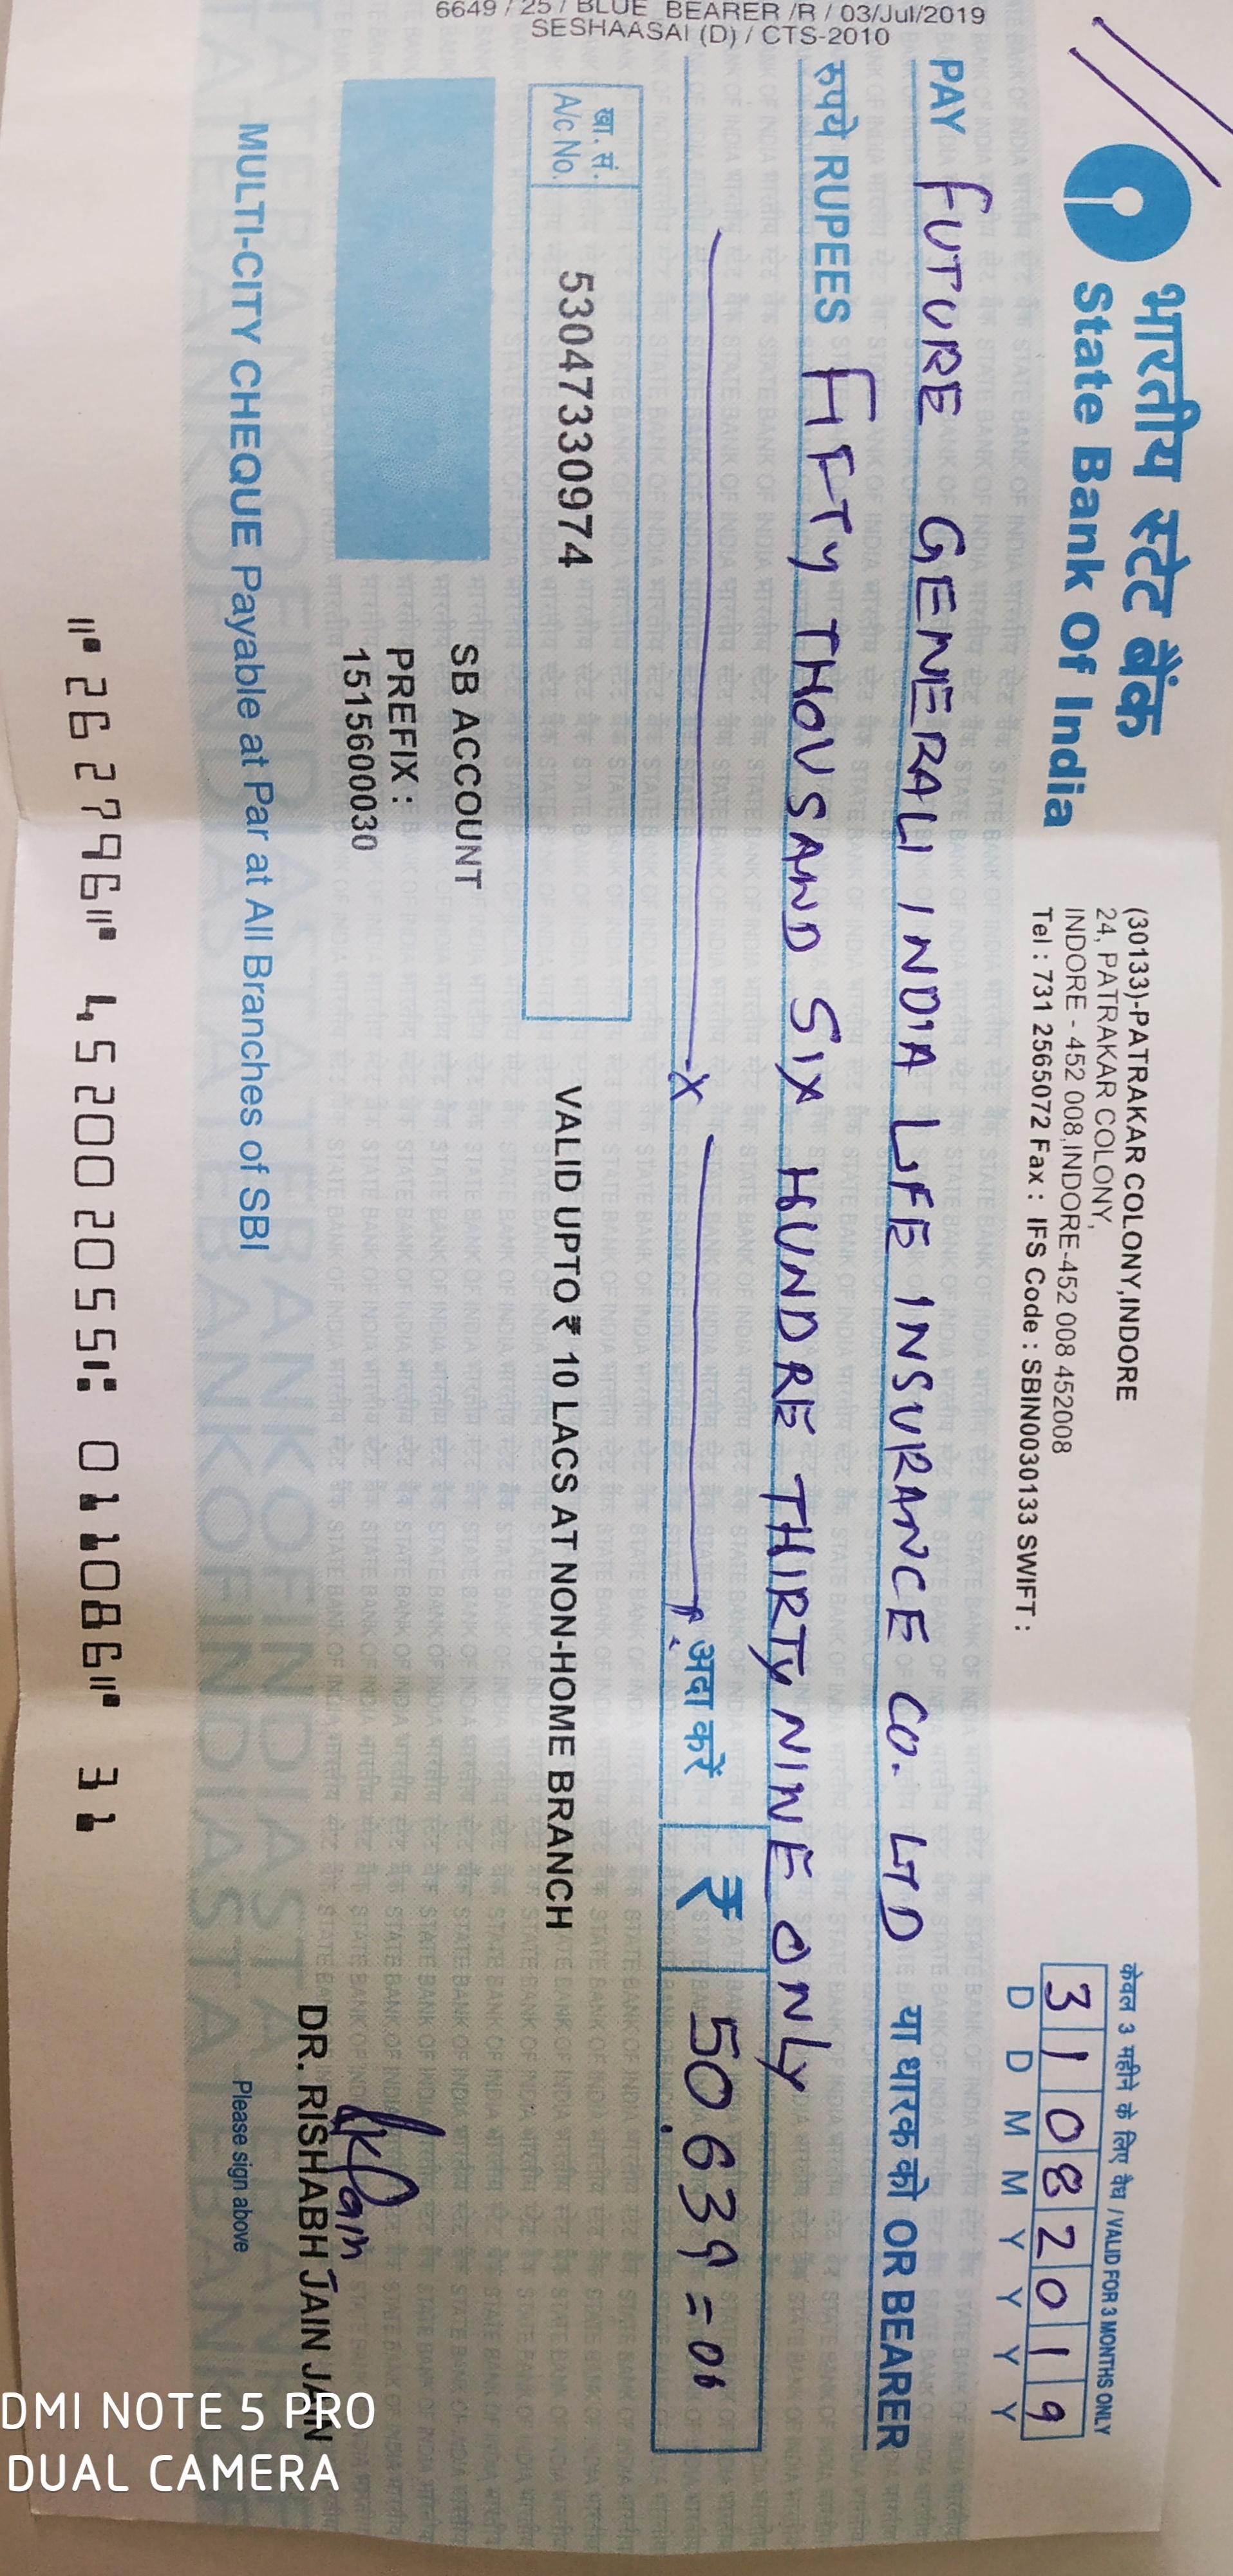 6649 / 25 / BLUE BEARER /R / 03/Jul/2019
SESHAASAI (D) / CTS-2010
भारतीय स्टेट बैंक
State Bank Of India
(30133)-PATRAKAR COLONY,INDORE
24, PATRAKAR COLONY,
INDORE - 452 008,INDORE-452 008 452008
Tel : 731 2565072 Fax : IFS Code : SBIN0030133 SWIFT :
केवल 3 महीने के लिए वैध / VALID FOR 3 MONTHS ONLY
31082019
D D M M Y Y Y Y
PAY FUTURE GENERALI INDIA LIFE INSURANCE CO. LTD या धारक को OR BEARER
रुपये RUPEES FIFTY THOUSAND SIX HUNDRE THIRTY NINE ONLY
अदा करें ₹ 50,639=00
खा. सं.
A/c No. 53047330974
VALID UPTO ₹ 10 LACS AT NON-HOME BRANCH
SB ACCOUNT
PREFIX :
151560030
DR. RISHABH JAIN JAIN
MULTI-CITY CHEQUE Payable at Par at All Branches of SBI
Please sign above
⑈262796⑈ 452002055⑆ 011086⑈ 31
DMI NOTE 5 PRO
DUAL CAMERA